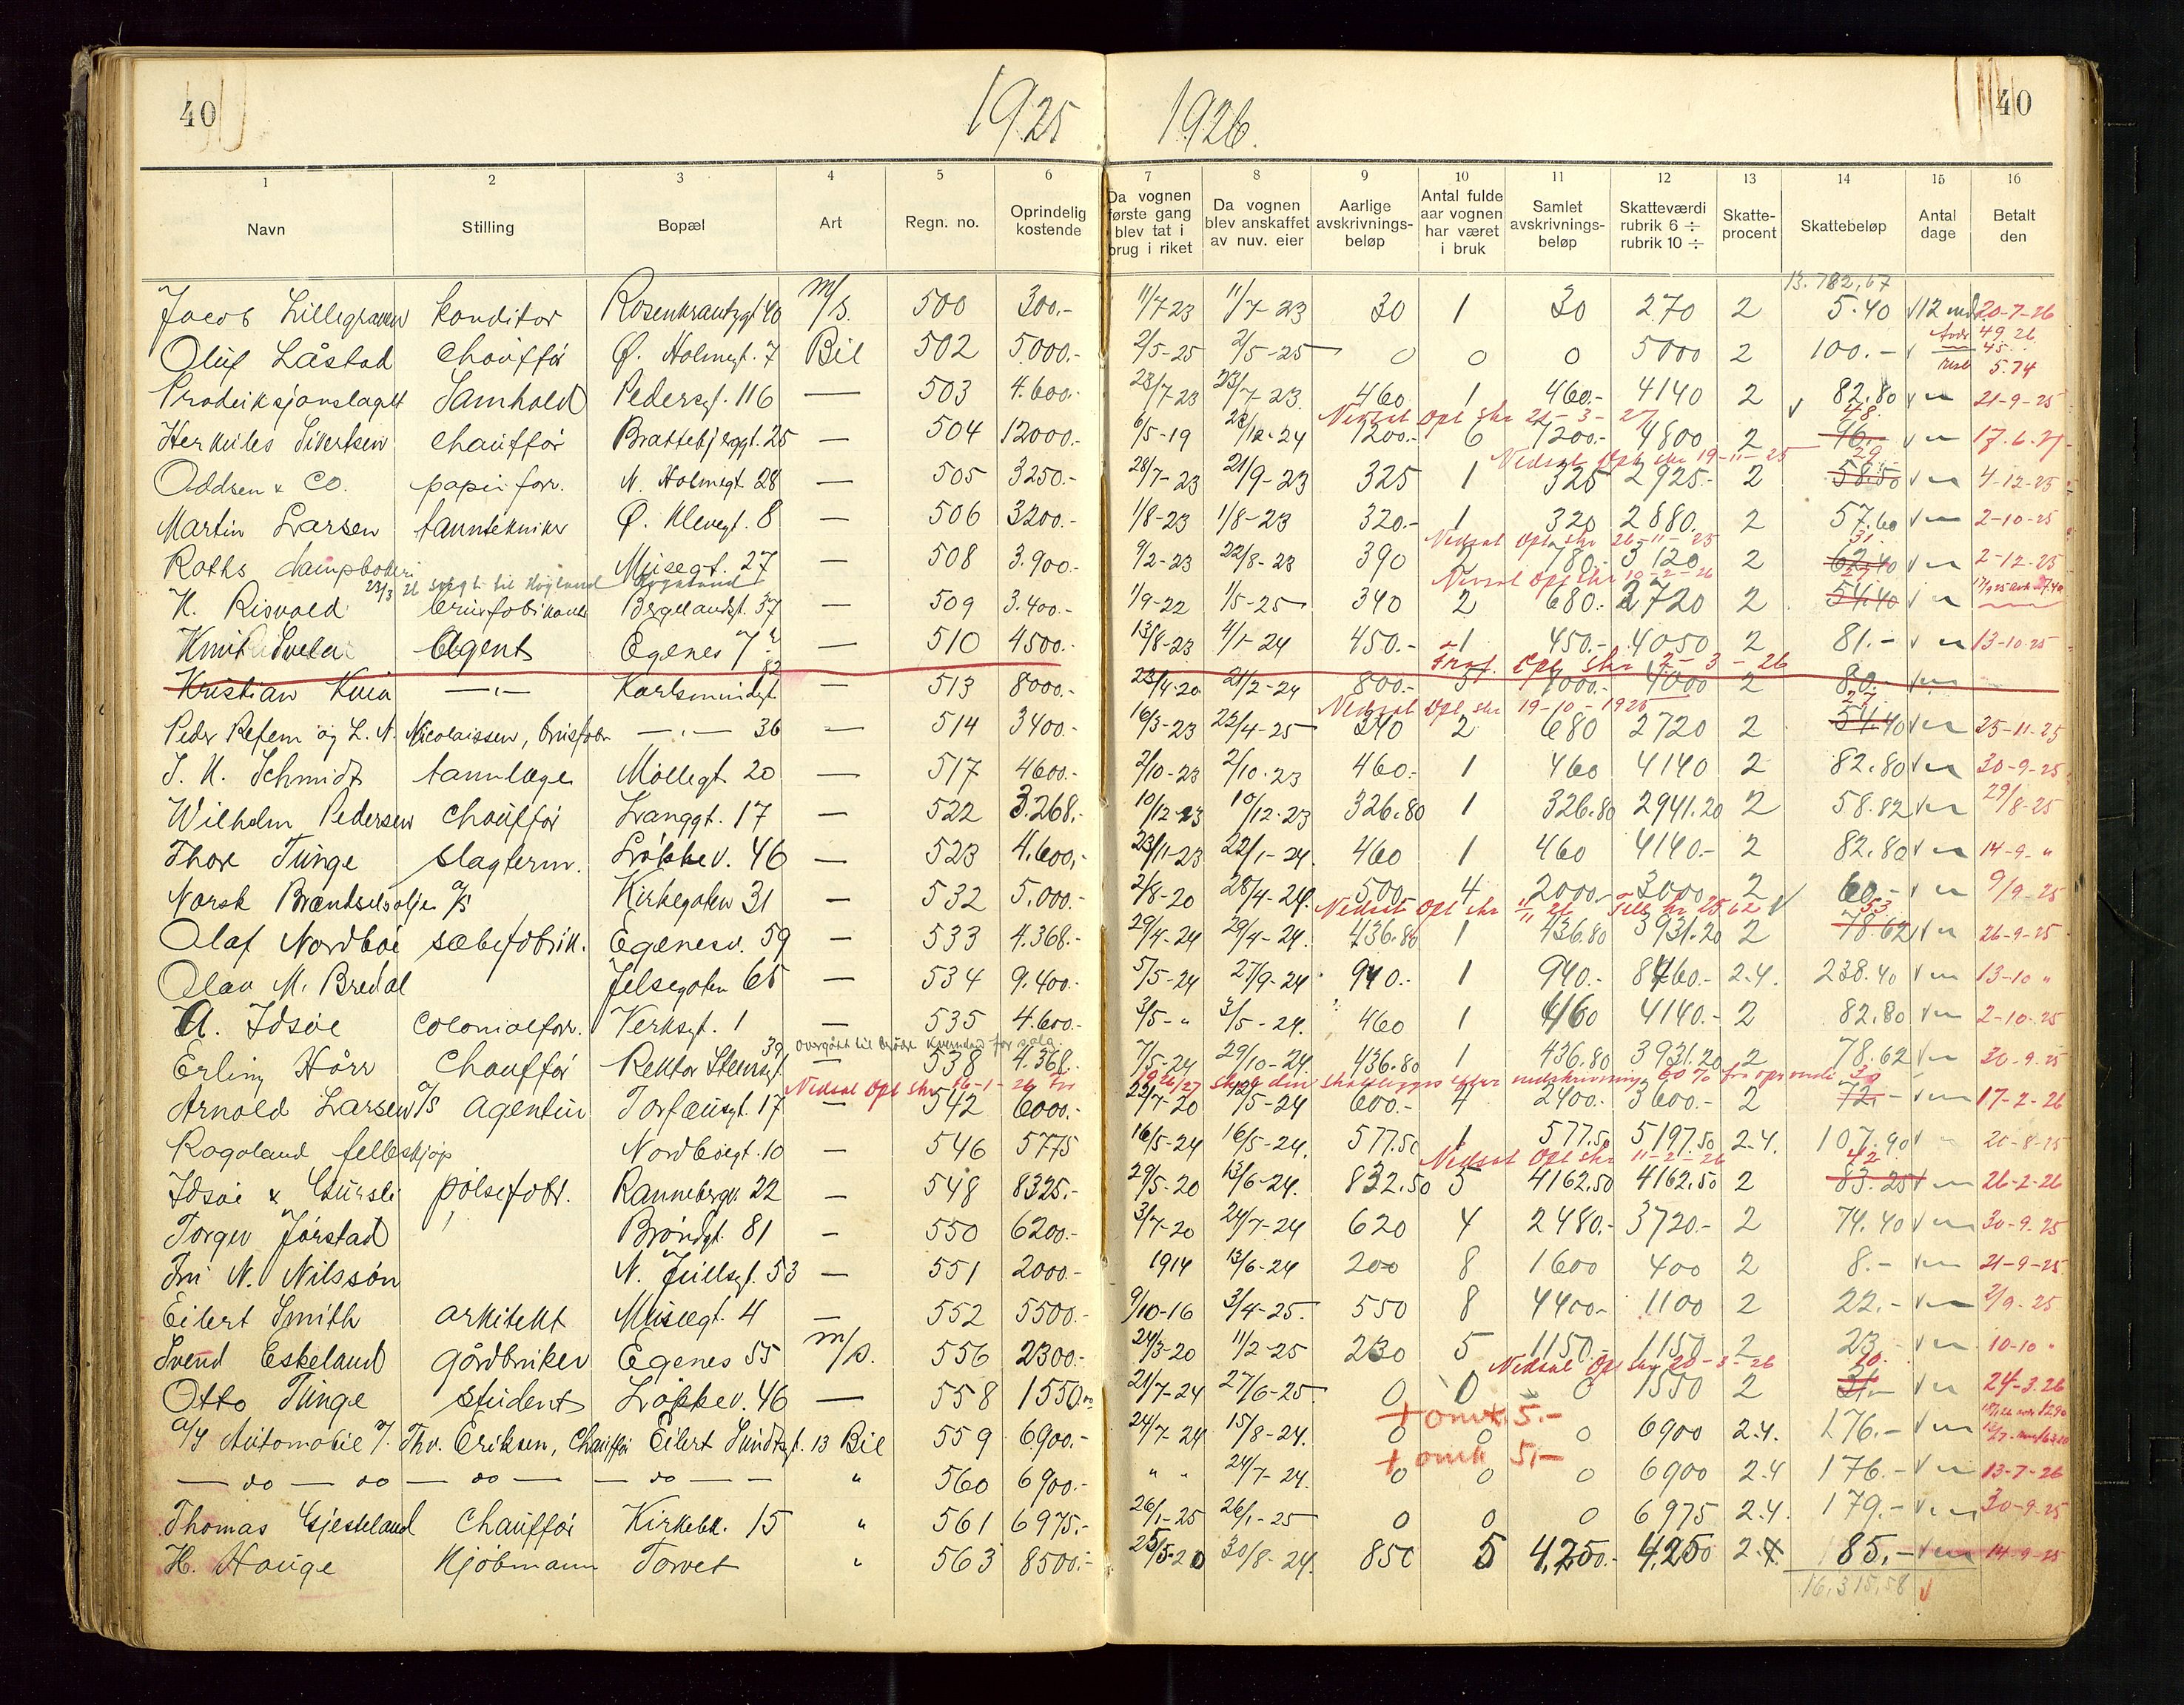 40 1925 1926. 40
1 2 3 4 5 6 7 8 9 10 11 12 13 14 15 16
Navn Stilling Bopæl Art Regn. no. Oprindelig kostende Da vognen første gang blev tat i brug i riket Da vognen blev anskaffet av nuv. eier Aarlige avskrivnings-beløp Antal fulde aar vognen har været i bruk Samlet avskrivnings-beløp Skatteværdi rubrik 6 ÷ rubrik 10 ÷ Skatte-procent Skattebeløp Antal dage Betalt den
13.782,67
Jacob Lillegraven konditor Rosenkrantzgt 40 m/s. 500 300.- 11/7-23 11/7-23 30 1 30 270 2 5.40 12 md 20-7-26
Oluf Låstad Chauffør Ø. Holmegt. 7 Bil 502 5.000.- 2/5-25 2/5-25 0 0 0 5000 2 100.- 49.26 45 rest 5.74
Produksjonslaget Samhold Pedersgt. 116 — 503 4.600.- 23/7-23 23/7-23 460 1 460.- 4140 2 82.80 21-9-25
Nedsat Opl skr 21-3-27 48.
Herkules Sivertsen Chauffør Brattebjerggt. 25 — 504 12000.- 6/5-19 22/12-24 1200.- 6 7200.- 4800 2 96.- 17.6.27
Nedsat Opl skr 19-11-25 29
Oddsen & Co. papirforr. N. Holmegt. 28 — 505 3250.- 28/7-23 21/9-23 325 1 325 2925.- 2 58.50 4-12-25
Martin Larsen tanntekniker Ø. Klevegt. 8 — 506 3200.- 1/8-23 1/8-23 320.- 1 320 2880. 2 57.60 2-10-25
Nedsat Opl skr 26-11-25 31.
Roths dampbakeri Musegt. 27 — 508 3.900.- 9/2-23 22/8-23 390 2 780.- 3120 2 62.40 2-12-25
solgt til Høgland Høgeland Nedsat Opl skr 10-2-26 27
K. Risvold brusfabrikant Bergelandsgt. 37 — 509 3.400.- 1/9-22 1/5-25 340 2 680.- 2720 2 54.40
Knut Svela Agent Egenes 7 — 510 4500.- 13/8-23 4/1-24 450.- 1 450.- 4050 2 81.- 13-10-25
Fraf. Opl skr 2-3-26
Kristian Kuia —"— Karlsmindegt. 82 — 513 8000.- 23/4-20 21/2-24 800.- 5 4000.- 4000 2 80.-
Nedsat Opl skr 19-10-1925 27
Peder Refem og L. N. Nicolaissen, brusfabr —"— 36 — 514 3400.- 16/3-23 22/4-25 340 2 680 2720 2 54.40 25-11-25
J. K. Schmidt tannlæge Møllegt. 20 — 517 4600.- 2/10-23 2/10-23 460.- 1 460 4140 2 82.80 30-9-25
Wilhelm Pedersen Chauffør Langgt. 17 — 522 3.268.- 10/12-23 10/12-23 326.80 1 326.80 2941.20 2 58.82 29/8-25
Thor Tunge slagterm. Løkkev. 46 — 523 4.600,- 23/11-23 22/1-24. 460 1 460 4140.- 2 82.80 14-9-"
Norsk Brændselsolje A/S Kirkegaten 31 — 532 5.000.- 2/8-20 28/4-24. 500 4 2000.- 3000 2 60.- 9/9-25
Nedsat Opl skr 53
Olaf Nordbøe sæbefabrik. Egenesv. 59 — 533 4.368.- 29/4-24 29/4-24. 436.80 1 436.80 3931.20 2 78.62 26-9-25
Olav M. Bredal Jelsegaten 65 — 534 9.400.- 5/5-24 27/9-24 940.- 1 940.- 8460.- 2.4. 238.40 13-10 "
A. Idsøe Colonialforr. Verksgt. 1 — 535 4.600.- 3/5-" 3/5-24. 460 1 460 4140.- 2 82.80 2-10-25
Overgått til Brødr. for salg.
Erling Hårr Chauffør Rektor Steensgt. 39 — 538 4.368 7/5-24 29/10-24. 436.80 1 436.80 3931.20 2 78.62 30-9-25
Nedsat Opl skr 16-1-26 for 1926/27 skal den skattlegges efter nedskrivning 60% fra opr verdi 30
Arnold Larsen A/S agentur Torfæusgt. 17 — 542 6000.- 22/7-20 12/5-24 600.- 4 2400.- 3600.- 2 72.- 17-2-26
Rogaland felleskjøp Nordbøegt. 10 — 546 5775 16/5-24 16/5-24. 577.50 1 577.50 5197.50 2.4. 107.90 20-8-25
Nedsat Opl skr 11-2-26 42
Idsøe & Gursli pølsefabr. Rannebergv. 22 — 548 8325.- 29/5-20 13/6-24. 832.50 5 4162.50 4162.50 2 83.25 26-2-26
Torger Jørstad Brøndgt. 81 — 550 6200.- 3/7-20 24/7-24 620 4 2480.- 3720.- 2 74.40 30-9-25
Fru N. Nilsson N. Jullsgt. 53 — 551 2000.- 1914 13/6-24 200 8 1600 400 2 8.- 21-9-25
Eilert Smith arkitekt Musegt. 4 — 552 5500.- 9/10-16 3/4-25. 550 8 4400.- 1100 2 22.- 2/9-25
Svend Eskeland gårdbruker Egenes 55 m/s. 556 2300.- 24/3-20 11/2-25 230 5 1150.- 1150 2 23 10-10 "
Nedsat Opl skr 20-3-26 10.
Otto Tunge student Løkkev. 46 — 558 1550.- 21/7-24 27/6-25 0 0 0 1550 2 31.- 24-3-26
+ omk. 5.-
A/S Automobile v/ Thv. Eriksen, Chauffør Eilert Sundtsgt. 13 Bil 559 6900.- 24/7-24 15/8-24. 0 0 0 6900 2.4. 176.-
+ omk 5,-
— do — do — do — — do — — " 560 6900.- " " 24/7-24. 0 0 0 6900 2.4 176.- 13-7-26
Thomas Gjesteland Chauffør Kirkebk. 15 " 561 6975,- 26/1-25 26/1-25 0 0 0 6975 2.4. 179.- 30-9-25
H. Hauge Kjøbmann Torvet " 563 8500.- 25/5-20 30/8-24. 850 5 4,250.- 4,250 2.4 85.- 14-9-25
16,315,58